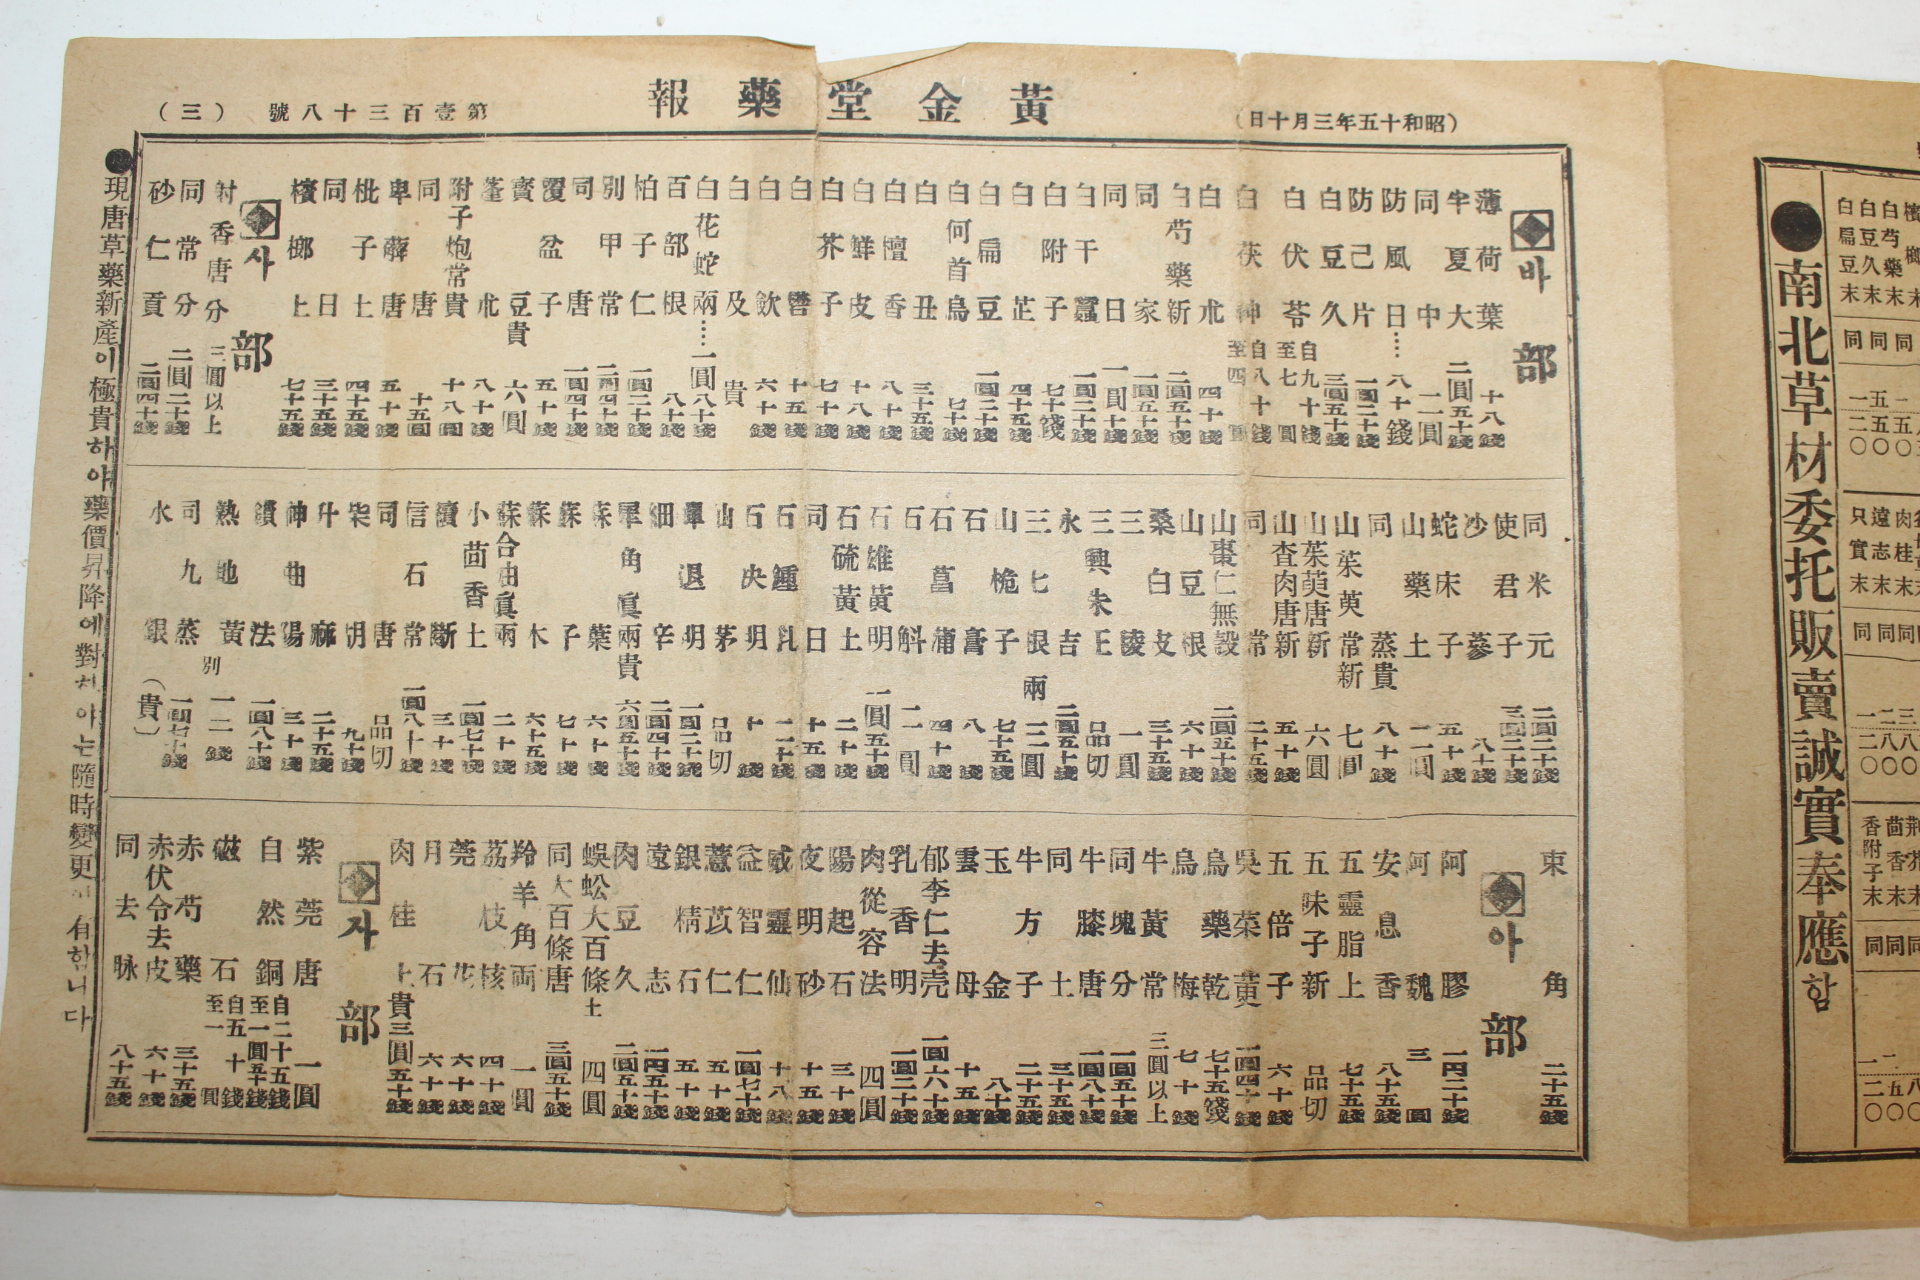 黃金堂藥報
(昭和十五年三月十日)
第壹百三十八號 (三)
바部
薄荷葉 十八錢
半夏大 二圓五十錢
同中 一二圓
防風日…… 八十錢
防己片 一圓二十錢
白豆久 三圓五十錢
白伏苓 自九十錢至七圓
白茯神 自八十錢至四圓
白朮 四十錢
白芍藥新 二圓五十錢
同家 一圓五十錢
同日 一圓十錢
白干蠶 一圓二十錢
白附子 七十錢
白芷 四十五錢
白扁豆 一圓二十錢
白何首烏 七十錢
白丑 三十五錢
白檀香 八十錢
白鮮皮 十八錢
白芥子 七十錢
白歛 六十錢
白及 貴
白花蛇兩…… 一圓八十錢
百部根 八十錢
柏子仁 一圓二十錢
別甲常 一圓四十錢
同唐 一圓四十錢
覆盆子 五十錢
寳豆貴 六圓
蓬朮 八十錢
附子炮常貴 十八圓
同唐 十五圓
卑薢唐 五十錢
枇子土 四十五錢
同日 三十五錢
檳榔上 七十五錢
사部
射香唐分 三圓以上
同常分 二圓二十錢
砂仁貢 二圓四十錢
同米元 二圓二十錢
使君子 三圓二十錢
沙蔘 八十錢
蛇床子 五十錢
山藥土 一二圓
同蒸貴 八十錢
山茱萸常新 七圓
山茱萸唐新 六圓
山査肉唐新 五十錢
同常 二十五錢
山棗仁無殼 二圓五十錢
山豆根 六十錢
桑白皮 三十五錢
三陵 一圓
三興朱王 品切
永吉 二圓五十錢
三七根兩 一二圓
山梔子 七十五錢
石膏 八錢
石菖蒲 四十錢
石斛 一二圓
石雄黃明 一圓五十錢
石硫黃土 二十錢
同日 十五錢
石決明 十錢
山茅 品切
單退明 一圓二十錢
細辛 一圓四十錢
犀角眞兩貴 六圓五十錢
蘇葉 六十錢
蘇子 七十錢
蘇木 六十五錢
蘇合油眞兩 二十錢
小茴香土 一圓七十錢
續斷 三十錢
信石常 一圓八十錢
同唐 品切
柴胡 九十錢
升麻 二十五錢
神曲陽 三十錢
鑚法 一圓八十錢
熟地黃別 一二錢
同九蒸 一圓七十錢
水銀 (貴)
束角 二十五錢
아部
阿膠 一円二十錢
阿魏 三圓
安息香 八十五錢
五靈脂上 七十五錢
五味子新 品切
五倍子 六十錢
吳菜萸 一圓四十錢
烏藥乾 七十五錢
烏梅 七十錢
牛黃常 三圓以上
同塊分 一圓五十錢
牛膝唐 一圓八十錢
同土 三十五錢
牛方子 二十五錢
玉金 八十錢
雲母 十五錢
郁李仁去壳 一圓六十錢
乳香明 一圓二十錢
肉從容法 四圓
陽起石 三十錢
夜明砂 十五錢
威靈仙 十八錢
益智仁 一圓七十錢
薏苡仁 五十錢
銀精石 五十錢
遠志 一円五十錢
肉豆久 二圓五十錢
蜈蚣大百條土 四圓
同大百條唐 三圓五十錢
羚羊角両 一圓
荔枝核 四十錢
莞花 六十錢
月石 六十錢
肉桂上貴 三圓五十錢
자部
紫莞唐 一圓
自然銅 自二十五錢至一圓五十錢
磁石 自五十錢至一圓
赤芍藥 三十五錢
赤伏令去皮 六十錢
同去脉 八十五錢
●現唐草藥新產이極貴하야藥價昇降에對하야는隨時變更이有함니다
●南北草材委托販賣誠實奉應함
白扁豆末 同 一二〇
白豆久末 同 五五〇
白芍藥末 同
檳榔末
只實末 同 一二〇
遠志末 同 二八〇
肉桂末 同 三八〇
香附子末 同 一二〇
茴香末 同 二五〇
荊芥末 同